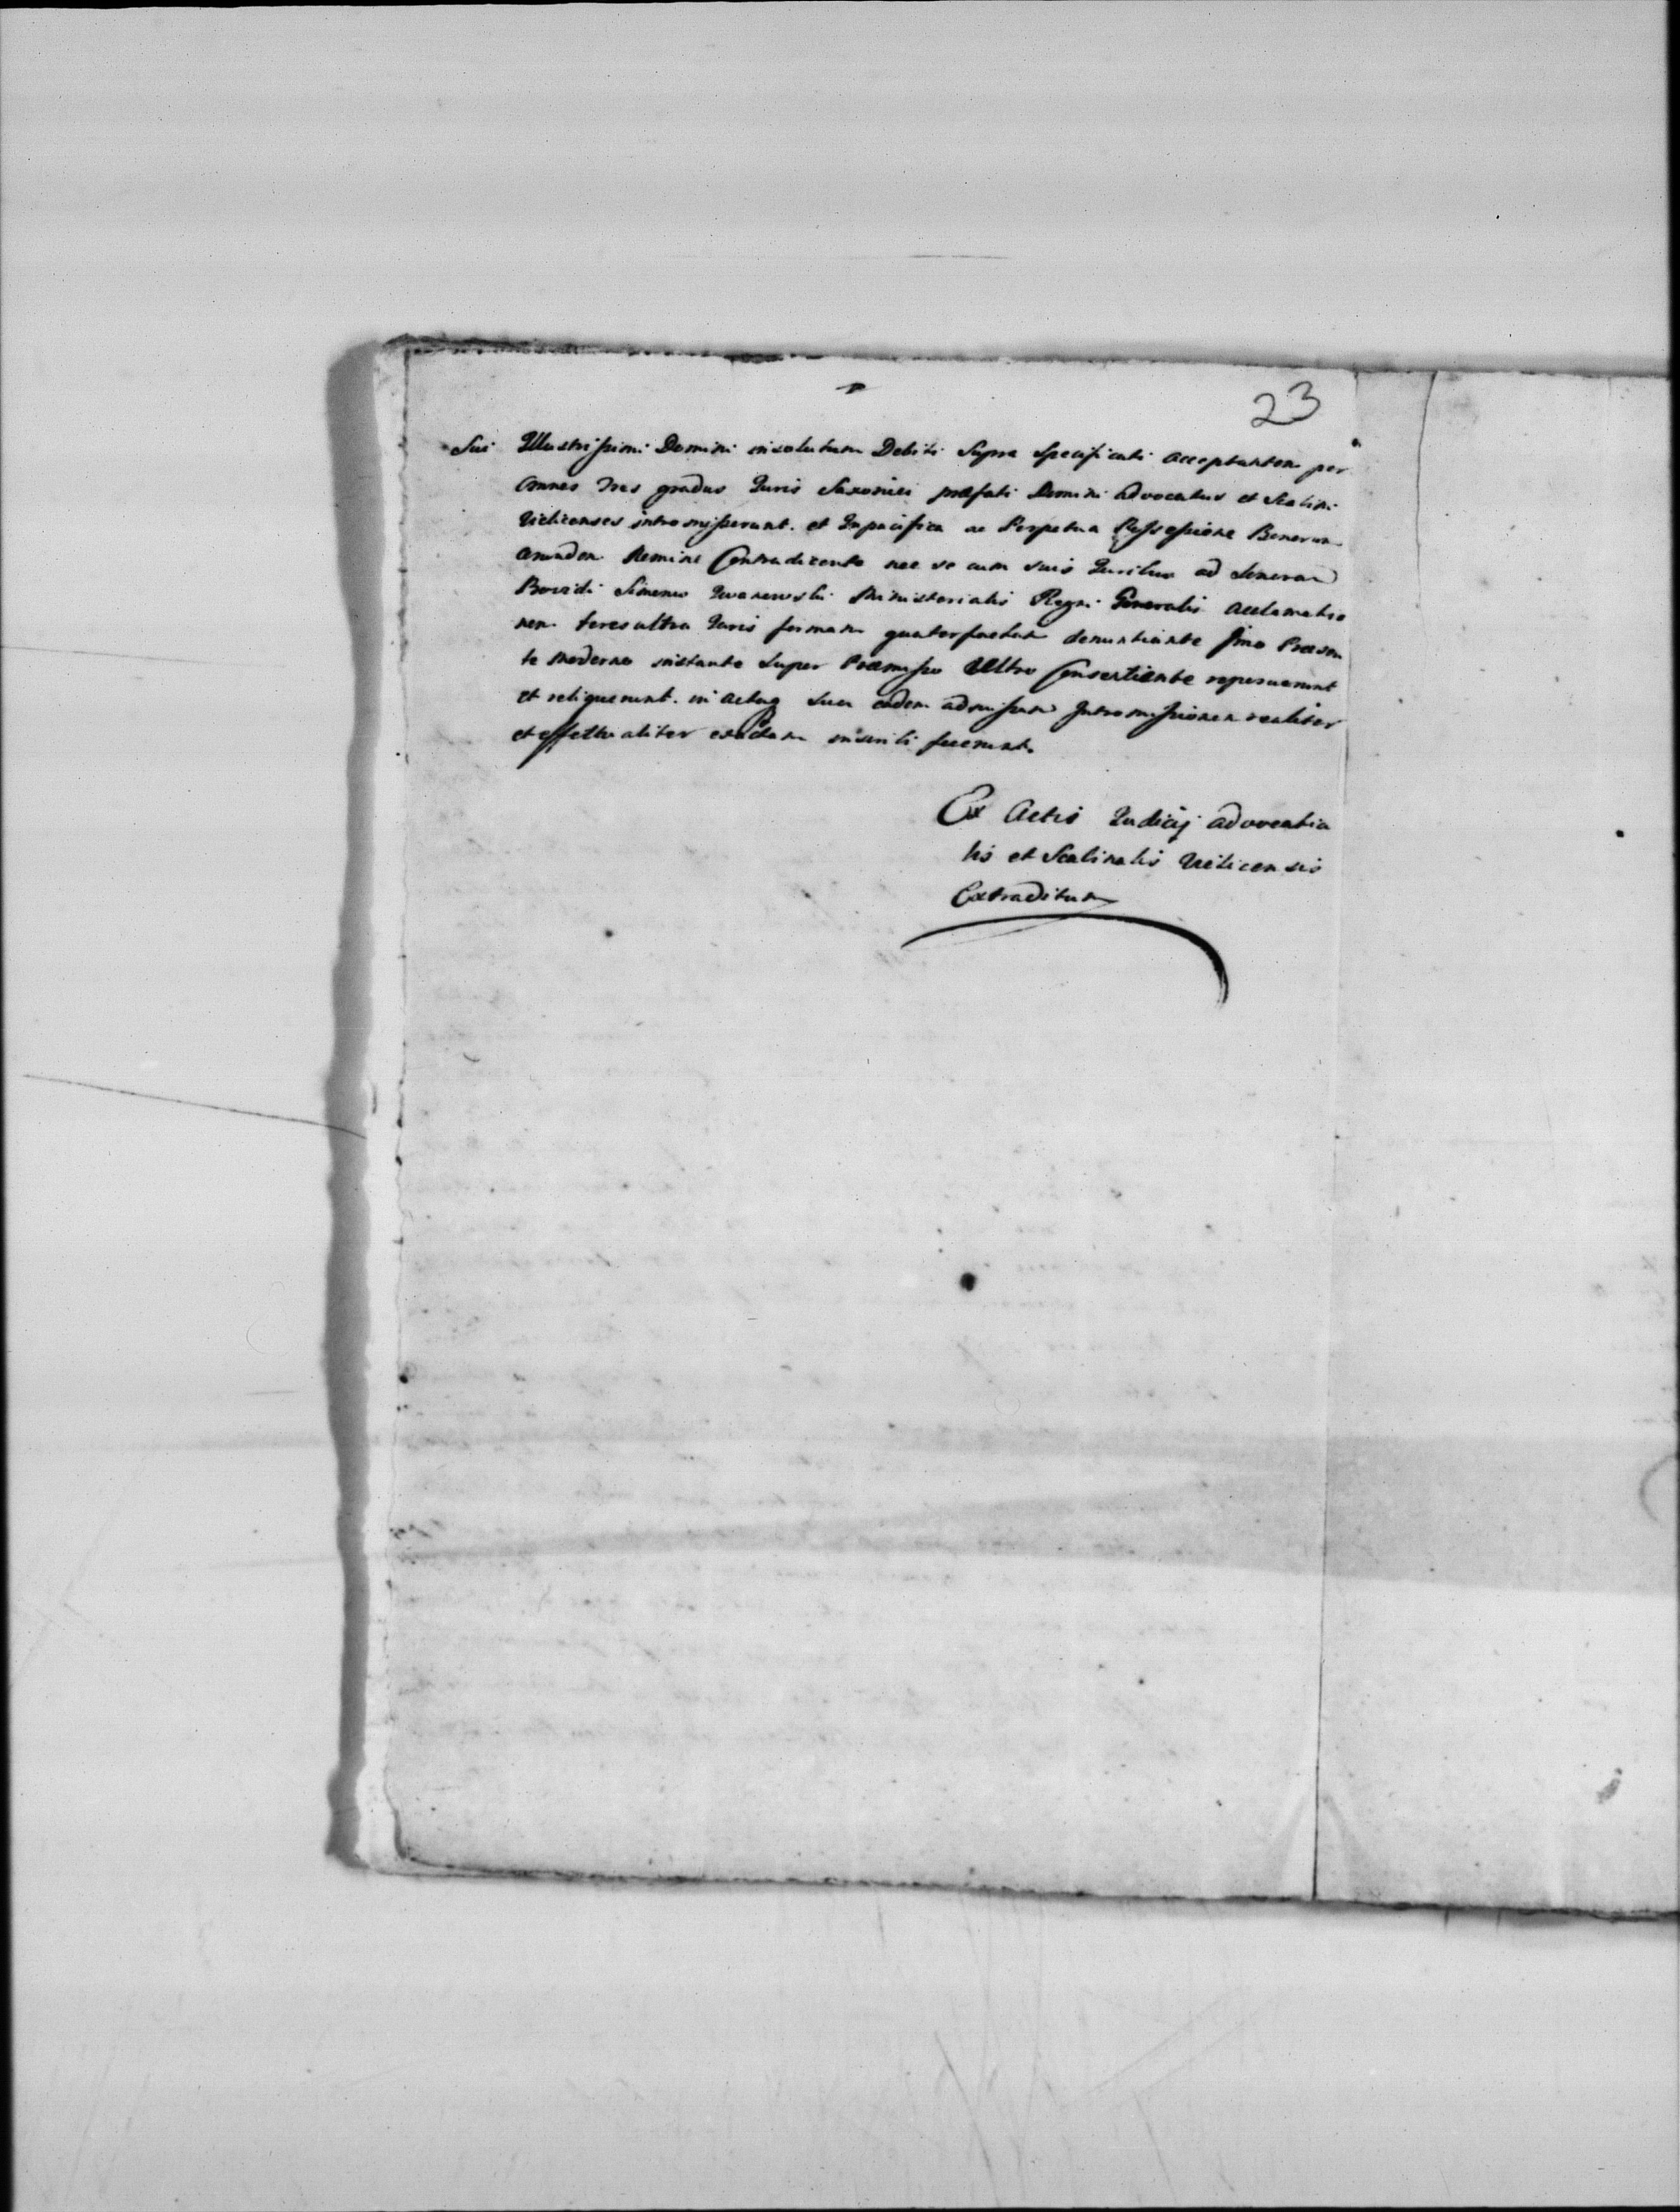 23
Sui Illustrissimi Domini insolutum Debiti Supra Specificati acceptantem per
omnes tres gradus Juris Saxonici præfati Domini advocatus et Scabini
Vielicenses intromisserunt. et In pacifica ac Perpetua Possessione Bonorum
eorundem Nemine Contradicente nec se cum suis Juribus ad
Simeone Iwanewski Ministerialis Regni Generalis acclamatio
nem Juris formam quater factam denuntiante Præsen
te moderno instante Super Præmisso Ultro Consentiente reposuerunt
et reliquerunt. in Sua eadem admissam Intromissionem realiter
et effectualiter inscribi fecerunt.
Ex Actis Judicij advocatia
lis et Scabinalis Vielicensis
Extraditum